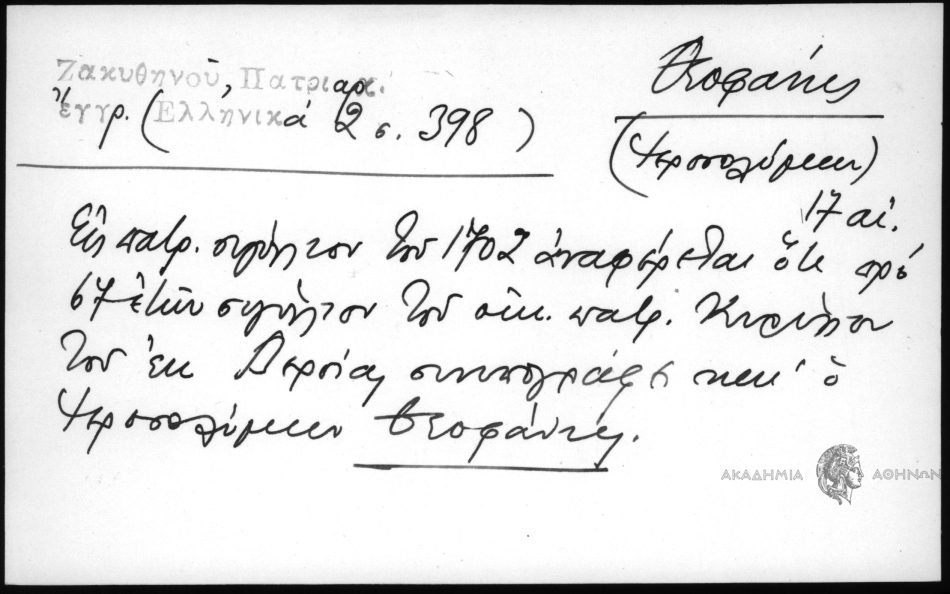 Ζακυθηνοῦ, Πατριαρχ.
ἔγγρ. (Ἑλληνικά 2 σ. 398)
Θεοφάνης
(Ἱεροσολύμων)
17 αἰ.
Εἰς πατρ. σιγίλλιον τοῦ 1702 ἀναφέρεται ὅτι πρό
67 ἐτῶν σιγίλλιον τοῦ οἰκ. πατρ. Κυρίλλου
τοῦ ἐκ Βερροίας συνυπογράφει καί ὁ
Ἱεροσολύμων Θεοφάνης.
ΑΚΑΔΗΜΙΑ ΑΘΗΝΩΝ